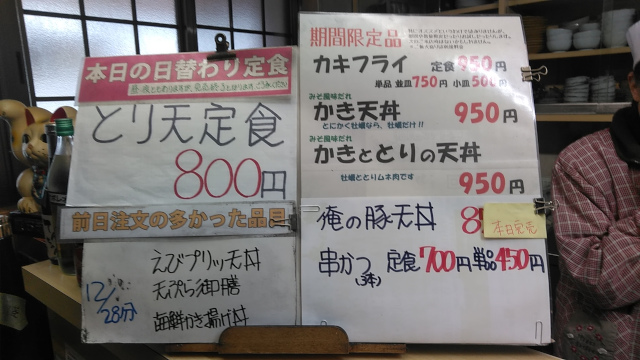 本日の日替わり定食
とり天定食
800円
前日注文の多かった品目
12/28分
えびプリッ天丼
天ぷら御膳
海鮮かき揚げ丼
期間限定品
カキフライ 定食950円
単品 並皿750円 小皿500円
みそ風味だれ
かき天丼 950円
とにかく牡蠣なら、牡蠣だけ!!
みそ風味だれ
かきととりの天丼
牡蠣ととりムネ肉です
950円
俺の豚天丼 8
本日完売
串かつ(3本) 定食700円 単品450円